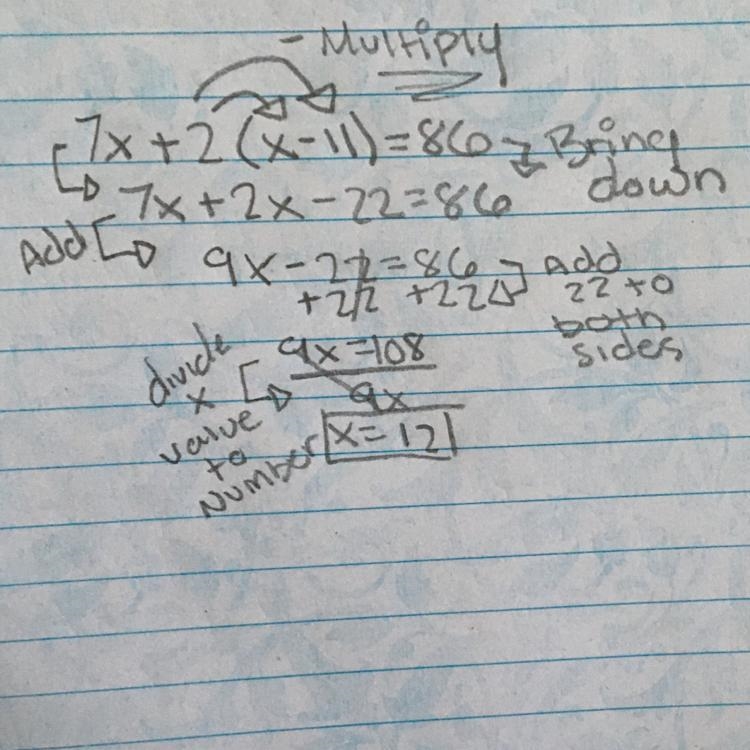 - Multiply
7x + 2 (x - 11) = 86
Bring
down
7x + 2x - 22 = 86
Add
9x - 22 = 86
+22 +22
Add
22 to
both
sides
9x = 108
9x
divide
x
value
to
number
x = 12